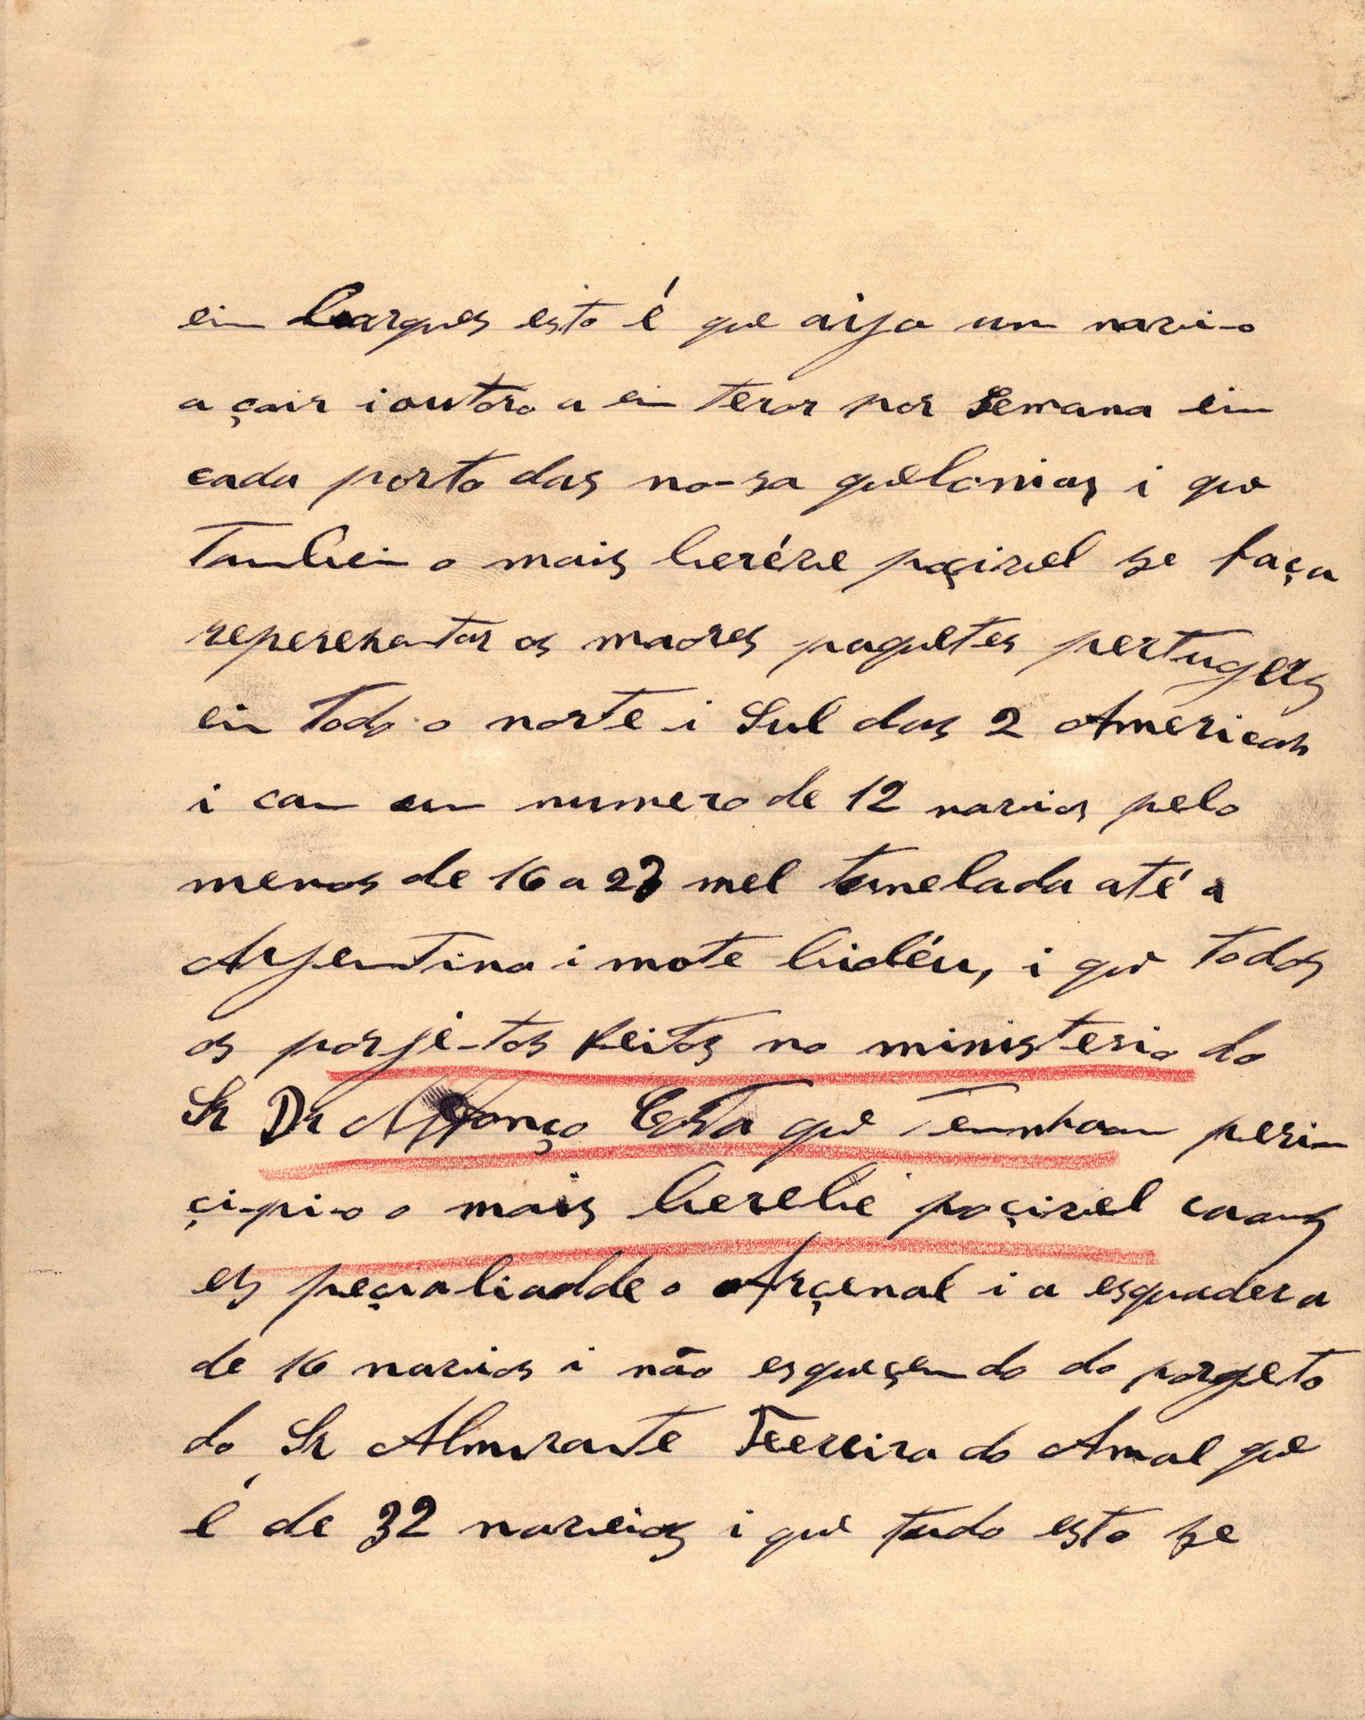 ein barques esto é que aija um navio
a çair i outoro a ein terar por Semana ein
cada porto das nosa quelonias i que
Tambein o mais beréve poçivel se faça
reperesentar os maores paquetes pertugezs
ein Todo o norte i Sul das 2 Americas
i com um numero de 12 navios pelo
menos de 16 a 23 mel tonelada até a
Argentina i mote bidéu, i que todos
os porjétos feitos no ministerio do
Sr Dr Affonço Costa que Tenham perin
çipio o mais berebe poçivel coomo
es peçialiadde o Arçenal i a esquadera
de 16 navios i não esqueçendo do porgeto
do Sr Almirante Ferreira do Amal que
é de 32 navios i que tudo esto se